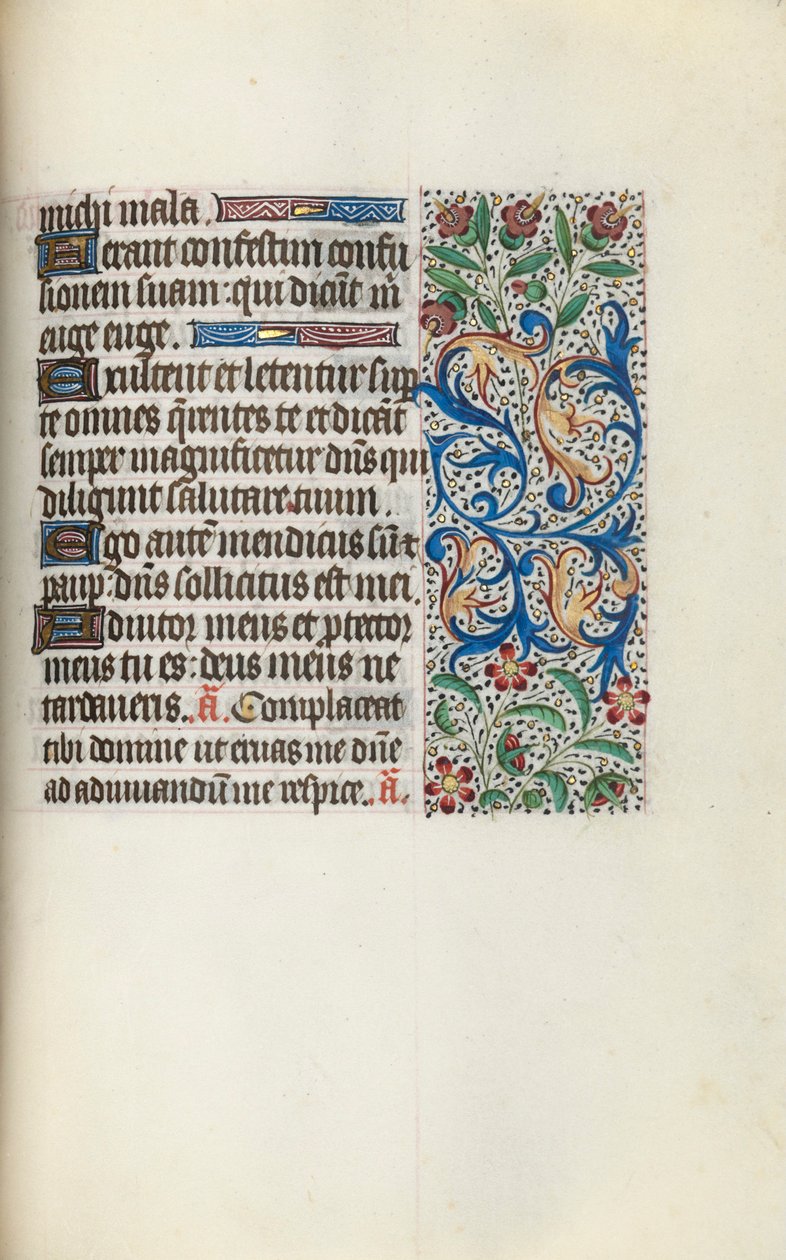 michi mala.
Ferant confestim confu
sionem suam: qui dicũt m̃
euge euge.
Exultent et letentur sup
te omnes q̃rentes te et dicãt
semper magnificetur dñs qui
diligunt salutare tuum.
Ego autẽ mendicus sũ ⁊
paup: dñs sollicitus est mei.
Adiutor meus et ꝓtector
meus tu es: deus meus ne
tardaueris. ã. Complaceat
tibi domine ut eruas me dñe
ad adiuuandũ me respice. ã.